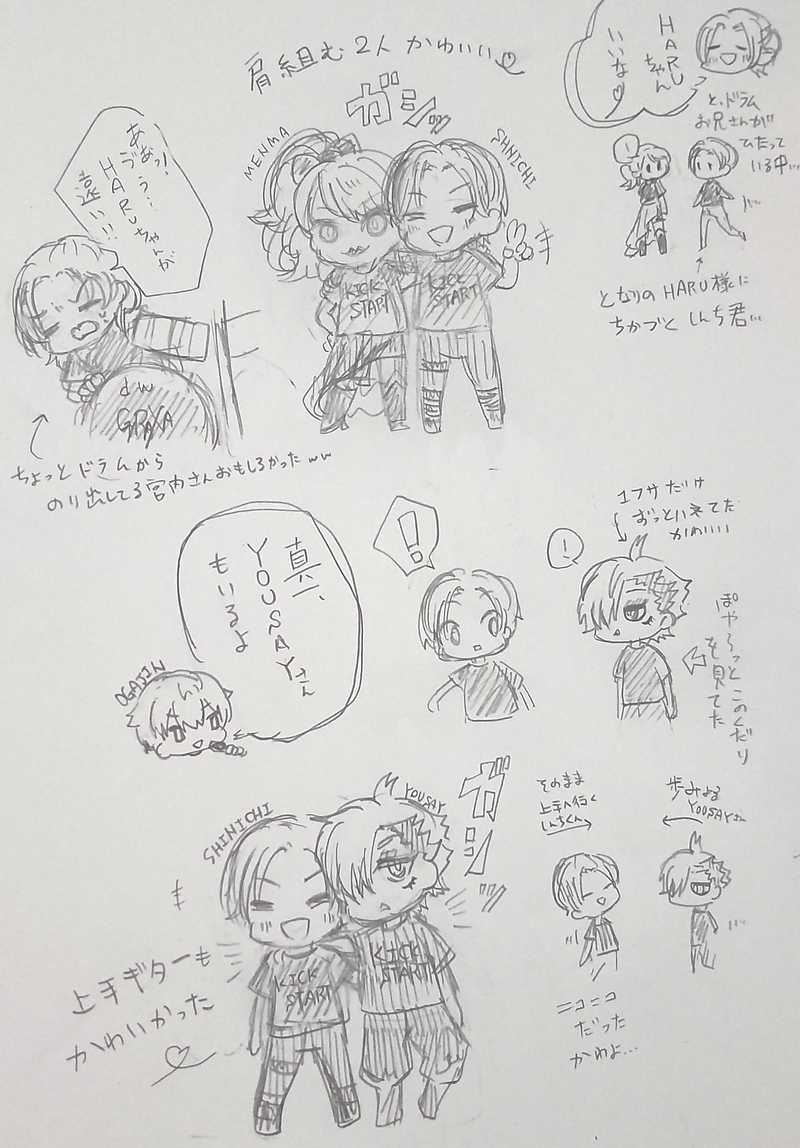 肩組む2人かわいい♡
ガシッ
MENMA
SHINICHI
HARUちゃん
いいな♡
と、ドラム
お兄さんが
ひたって
いる中…
となりのHARU様に
ちかづくしんち君…
あぁっ!
HARUちゃんが
遠い!!
KICK
START
KICK
START
dw
ちょっとドラムから
のり出してる宮内さんおもしろかったww
真一、
YOUSAYさん
もいるよ
OGAJIN
!
!
1フサだけ
ずっとハネてた
かわいい
ぽや〜っとこのくだり
を見てた
SHINICHI
YOUSAY
ガシッ
KICK
START
KICK
START
上手ギターも
かわいかった
♡
そのまま
上手へ行く
しんちくん
歩みよる
YOUSAYさん
ニコニコ
だった
かわよ…